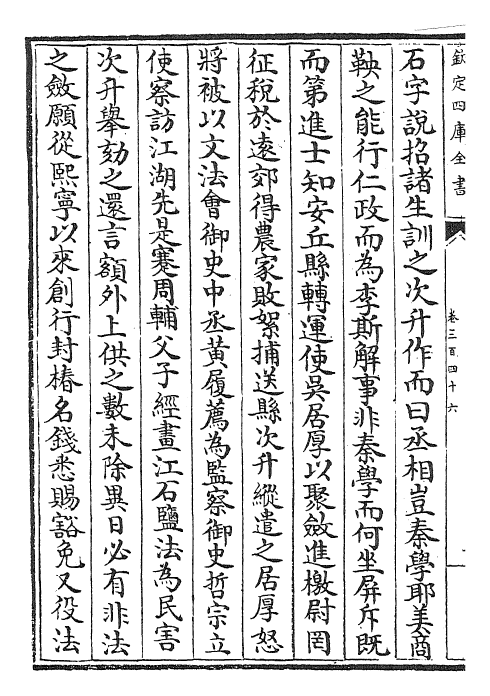 欽定四庫全書
卷三百四十六
石字說招諸生訓之次升作而曰丞相豈秦學耶美商
鞅之能行仁政而為李斯解事非秦學而何坐屏斥既
而第進士知安丘縣轉運使吳居厚以聚斂進檄尉罔
征稅於遠郊得農家敗絮捕送縣次升縱遣之居厚怒
將被以文法會御史中丞黃履薦為監察御史哲宗立
使察訪江湖先是蹇周輔父子經畫江右鹽法為民害
次升舉劾之還言額外上供之數未除異日必有非法
之斂願從熙寧以來創行封樁名錢悉賜豁免又役法